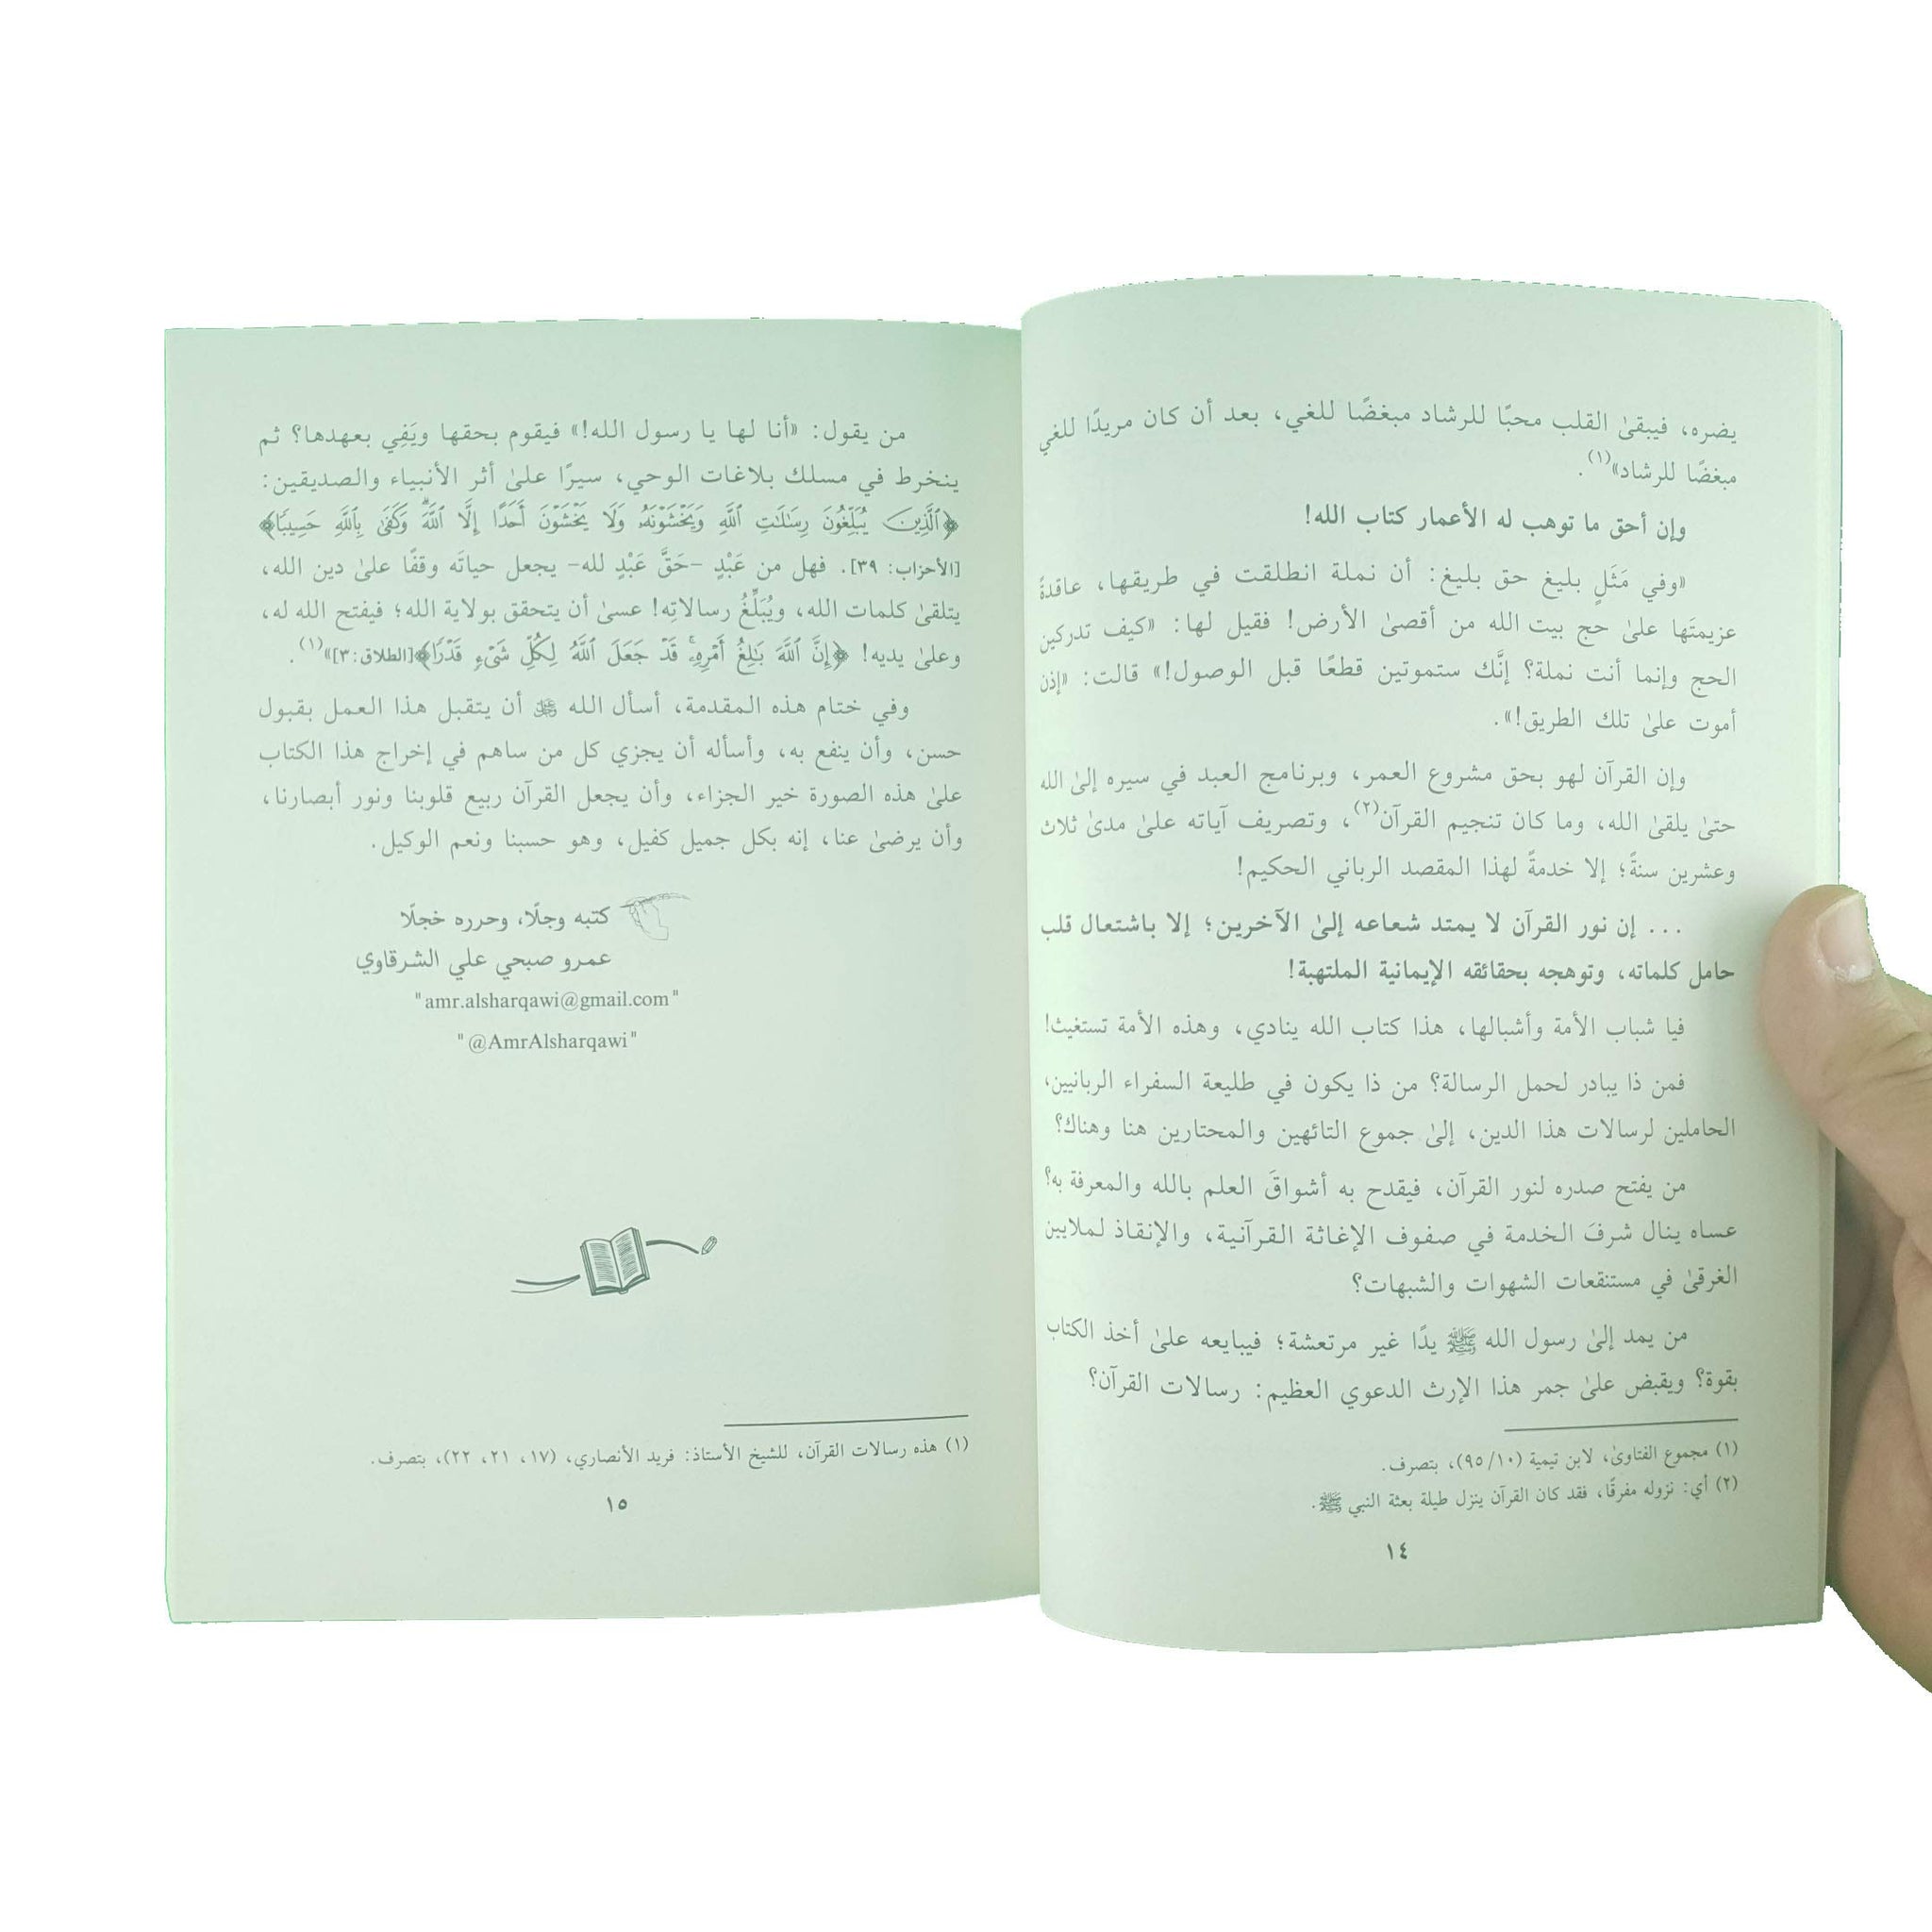 يضره، فيبقىٰ القلب محبًا للرشاد مبغضًا للغي، بعد أن كان مريدًا للغي
مبغضًا للرشاد»(١).
وإن أحق ما توهب له الأعمار كتاب الله!
«وفي مَثَلٍ بليغ حق بليغ: أن نملة انطلقت في طريقها، عاقدةً
عزيمتَها علىٰ حج بيت الله من أقصىٰ الأرض! فقيل لها: «كيف تدركين
الحج وإنما أنت نملة؟ إنَّك ستموتين قطعًا قبل الوصول!» قالت: «إذن
أموت علىٰ تلك الطريق!».
وإن القرآن لهو بحق مشروع العمر، وبرنامج العبد في سيره إلىٰ الله
حتىٰ يلقىٰ الله، وما كان تنجيم القرآن(٢)، وتصريف آياته علىٰ مدىٰ ثلاث
وعشرين سنةً؛ إلا خدمةً لهذا المقصد الرباني الحكيم!
... إن نور القرآن لا يمتد شعاعه إلىٰ الآخرين؛ إلا باشتعال قلب
حامل كلماته، وتوهجه بحقائقه الإيمانية الملتهبة!
فيا شباب الأمة وأشبالها، هذا كتاب الله ينادي، وهذه الأمة تستغيث!
فمن ذا يبادر لحمل الرسالة؟ من ذا يكون في طليعة السفراء الربانيين،
الحاملين لرسالات هذا الدين، إلىٰ جموع التائهين والمحتارين هنا وهناك؟
من يفتح صدره لنور القرآن، فيقدح به أشواقَ العلم بالله والمعرفة به؟
عساه ينال شرفَ الخدمة في صفوف الإغاثة القرآنية، والإنقاذ لملايين
الغرقىٰ في مستنقعات الشهوات والشبهات؟
من يمد إلىٰ رسول الله ﷺ يدًا غير مرتعشة؛ فيبايعه علىٰ أخذ الكتاب
بقوة؟ ويقبض علىٰ جمر هذا الإرث الدعوي العظيم: رسالات القرآن؟
(١) مجموع الفتاوىٰ، لابن تيمية (١٠/ ٩٥)، بتصرف.
(٢) أي: نزوله مفرقًا، فقد كان القرآن ينزل طيلة بعثة النبي ﷺ.
١٤
من يقول: «أنا لها يا رسول الله!» فيقوم بحقها ويَفِي بعهدها؟ ثم
ينخرط في مسلك بلاغات الوحي، سيرًا علىٰ أثر الأنبياء والصديقين:
﴿ٱلَّذِينَ يُبَلِّغُونَ رِسَٰلَٰتِ ٱللَّهِ وَيَخْشَوْنَهُۥ وَلَا يَخْشَوْنَ أَحَدًا إِلَّا ٱللَّهَ ۗ وَكَفَىٰ بِٱللَّهِ حَسِيبًا﴾
[الأحزاب: ٣٩]. فهل من عَبْدٍ -حَقَّ عَبْدٍ لله- يجعل حياتَه وقفًا علىٰ دين الله،
يتلقىٰ كلمات الله، ويُبَلِّغُ رسالاتِه! عسىٰ أن يتحقق بولاية الله؛ فيفتح الله له،
وعلىٰ يديه! ﴿إِنَّ ٱللَّهَ بَٰلِغُ أَمْرِهِۦ ۚ قَدْ جَعَلَ ٱللَّهُ لِكُلِّ شَىْءٍ قَدْرًا﴾[الطلاق:٣]»(١).
وفي ختام هذه المقدمة، أسأل الله ﷻ أن يتقبل هذا العمل بقبول
حسن، وأن ينفع به، وأسأله أن يجزي كل من ساهم في إخراج هذا الكتاب
علىٰ هذه الصورة خير الجزاء، وأن يجعل القرآن ربيع قلوبنا ونور أبصارنا،
وأن يرضىٰ عنا، إنه بكل جميل كفيل، وهو حسبنا ونعم الوكيل.
كتبه وجلًا، وحرره خجلًا
عمرو صبحي علي الشرقاوي
"amr.alsharqawi@gmail.com"
"@AmrAlsharqawi"
(١) هذه رسالات القرآن، للشيخ الأستاذ: فريد الأنصاري، (١٧، ٢١، ٢٢)، بتصرف.
١٥